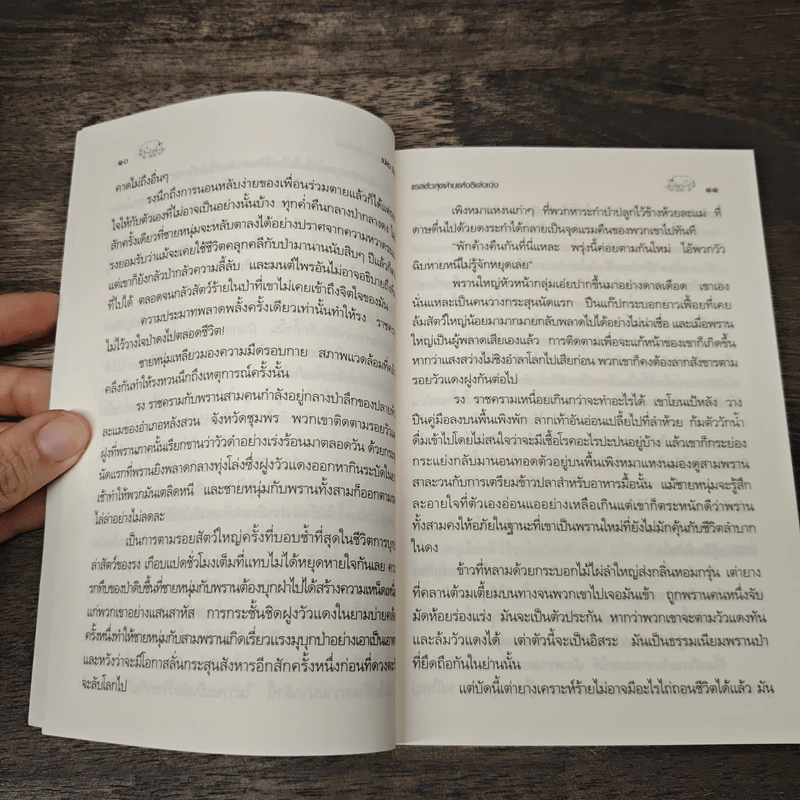 ๑๐
คาดไม่ถึงอื่นๆ
รงนึกถึงการนอนหลับง่ายของเพื่อนร่วมตายแล้วก็ได้แต่
ใจให้กับตัวเองที่ไม่อาจเป็นอย่างนั้นบ้าง ทุกค่ำคืนกลางป่ากลางดง
สักครั้งเดียวที่ชายหนุ่มจะหลับตาลงได้อย่างปราศจากความหวาด
รงยอมรับว่าแม้จะเคยใช้ชีวิตคลุกคลีกับป่ามานานนับสิบๆ ปีแล้วก็
แต่เขาก็ยังกลัวป่ากลัวความลี้ลับ และมนต์ไพรอันไม่อาจอธิบายถึง
ที่ไปได้ ตลอดจนกลัวสัตว์ร้ายในป่าที่เขาไม่เคยเข้าถึงจิตใจของมัน
ความประมาทพลาดพลั้งครั้งเดียวเท่านั้นทำให้รง
ไม่ไว้วางใจป่าดงไปตลอดชีวิต!
ชายหนุ่มเหลียวมองความมืดรอบกาย สภาพแวดล้อมที่
คลึงกันทำให้รงหวนนึกถึงเหตุการณ์ครั้งนั้น
รง ราชครามกับพรานสามคนกำลังอยู่กลางป่าลึกของปลาย
ละแมของอำเภอหลังสวน จังหวัดชุมพร พวกเขาติดตามรอยวัว
ฝูงที่พรานภาคนั้นเรียกขานว่าวัวดำอย่างเร่งร้อนมาตลอดวัน ด้วย
นัดแรกที่พรานยิงพลาดกลางทุ่งโล่งซึ่งฝูงวัวแดงออกหากินระบัดใน
เช้าทำให้พวกมันเตลิดหนี และชายหนุ่มกับพรานทั้งสามก็ออกตาม
ไล่ล่าอย่างไม่ลดละ
เป็นการตามรอยสัตว์ใหญ่ครั้งที่บอบช้ำที่สุดในชีวิตการบุก
ล่าสัตว์ของรง เกือบแปดชั่วโมงเต็มที่แทบไม่ได้หยุดหายใจกันเลย
รกทึบของป่าดิบชื้นที่ชายหนุ่มกับพรานต้องบุกฝ่าไปได้สร้างความเหน็ด
แก่พวกเขาอย่างแสนสาหัส การกระชั้นชิดฝูงวัวแดงในยามบ่าย
ครั้งหนึ่งทำให้ชายหนุ่มกับสามพรานเกิดเรี่ยวแรงมุบุกป่าอย่างเอาเป็น
และหวังว่าจะมีโอกาสลั่นกระสุนสังหารอีกสักครั้งหนึ่งก่อนที่ดวง
จะลับโลกไป
๑๑
เพิงหมาแหงนเก่าๆ ที่พวกหาระกำป่าปลูกไว้ข้างห้วยละแม ที่
ดาษดื่นไปด้วยดงระกำได้กลายเป็นจุดแรมคืนของพวกเขาไปทันที
“พักค้างคืนกันที่นี่แหละ พรุ่งนี้ค่อยตามกันใหม่ ไอ้พวกวัว
ฉิบหายหนีไม่รู้จักหยุดเลย”
พรานใหญ่หัวหน้ากลุ่มเอ่ยปากขึ้นมาอย่างดาลเดือด เขาเอง
นั่นแหละเป็นคนวางกระสุนนัดแรก ปืนแก๊ปกระบอกยาวเฟื้อยที่เคย
ล้มสัตว์ใหญ่น้อยมามากมายกลับพลาดไปได้อย่างไม่น่าเชื่อ และเมื่อพราน
ใหญ่เป็นผู้พลาดเสียเองแล้ว การติดตามเพื่อจะแก้หน้าของเขาก็เกิดขึ้น
หากว่าแสงสว่างไม่ชิงอำลาโลกไปเสียก่อน พวกเขาก็คงต้องลากสังขารตาม
รอยวัวแดงฝูงกันต่อไป
รง ราชครามเหนื่อยเกินกว่าจะทำอะไรได้ เขาโยนเป้หลัง วาง
ปืนคู่มือลงบนพื้นเพิงพัก ลากเท้าอันอ่อนเปลี้ยไปที่ลำห้วย ก้มตัววักน้ำ
ดื่มเข้าไปโดยไม่สนใจว่าจะมีเชื้อโรคอะไรปะปนอยู่บ้าง แล้วเขาก็กระย่อง
กระแย่งกลับมานอนทอดตัวอยู่บนพื้นเพิงหมาแหงนมองดูสามพราน
สาละวนกับการเตรียมข้าวปลาสำหรับอาหารมื้อนั้น แม้ชายหนุ่มจะรู้สึก
ละอายใจที่ตัวเองอ่อนแออย่างเหลือเกินแต่เขาก็ตระหนักดีว่าพราน
ทั้งสามคงให้อภัยในฐานะที่เขาเป็นพรานใหม่ที่ยังไม่มักคุ้นกับชีวิตลำบาก
ในดง
ข้าวที่หลามด้วยกระบอกไม้ไผ่ลำใหญ่ส่งกลิ่นหอมกรุ่น เต่ายาง
ที่คลานต้วมเตี้ยมบนทางจนพวกเขาไปเจอมันเข้า ถูกพรานคนหนึ่งจับ
มัดห้อยร่องแร่ง มันจะเป็นตัวประกัน หากว่าพวกเขาจะตามวัวแดงทัน
และล้มวัวแดงได้ เต่าตัวนี้จะเป็นอิสระ มันเป็นธรรมเนียมพรานป่า
ที่ยึดถือกันในย่านนั้น
แต่บัดนี้เต่ายางเคราะห์ร้ายไม่อาจมีอะไรไถ่ถอนชีวิตได้แล้ว มัน